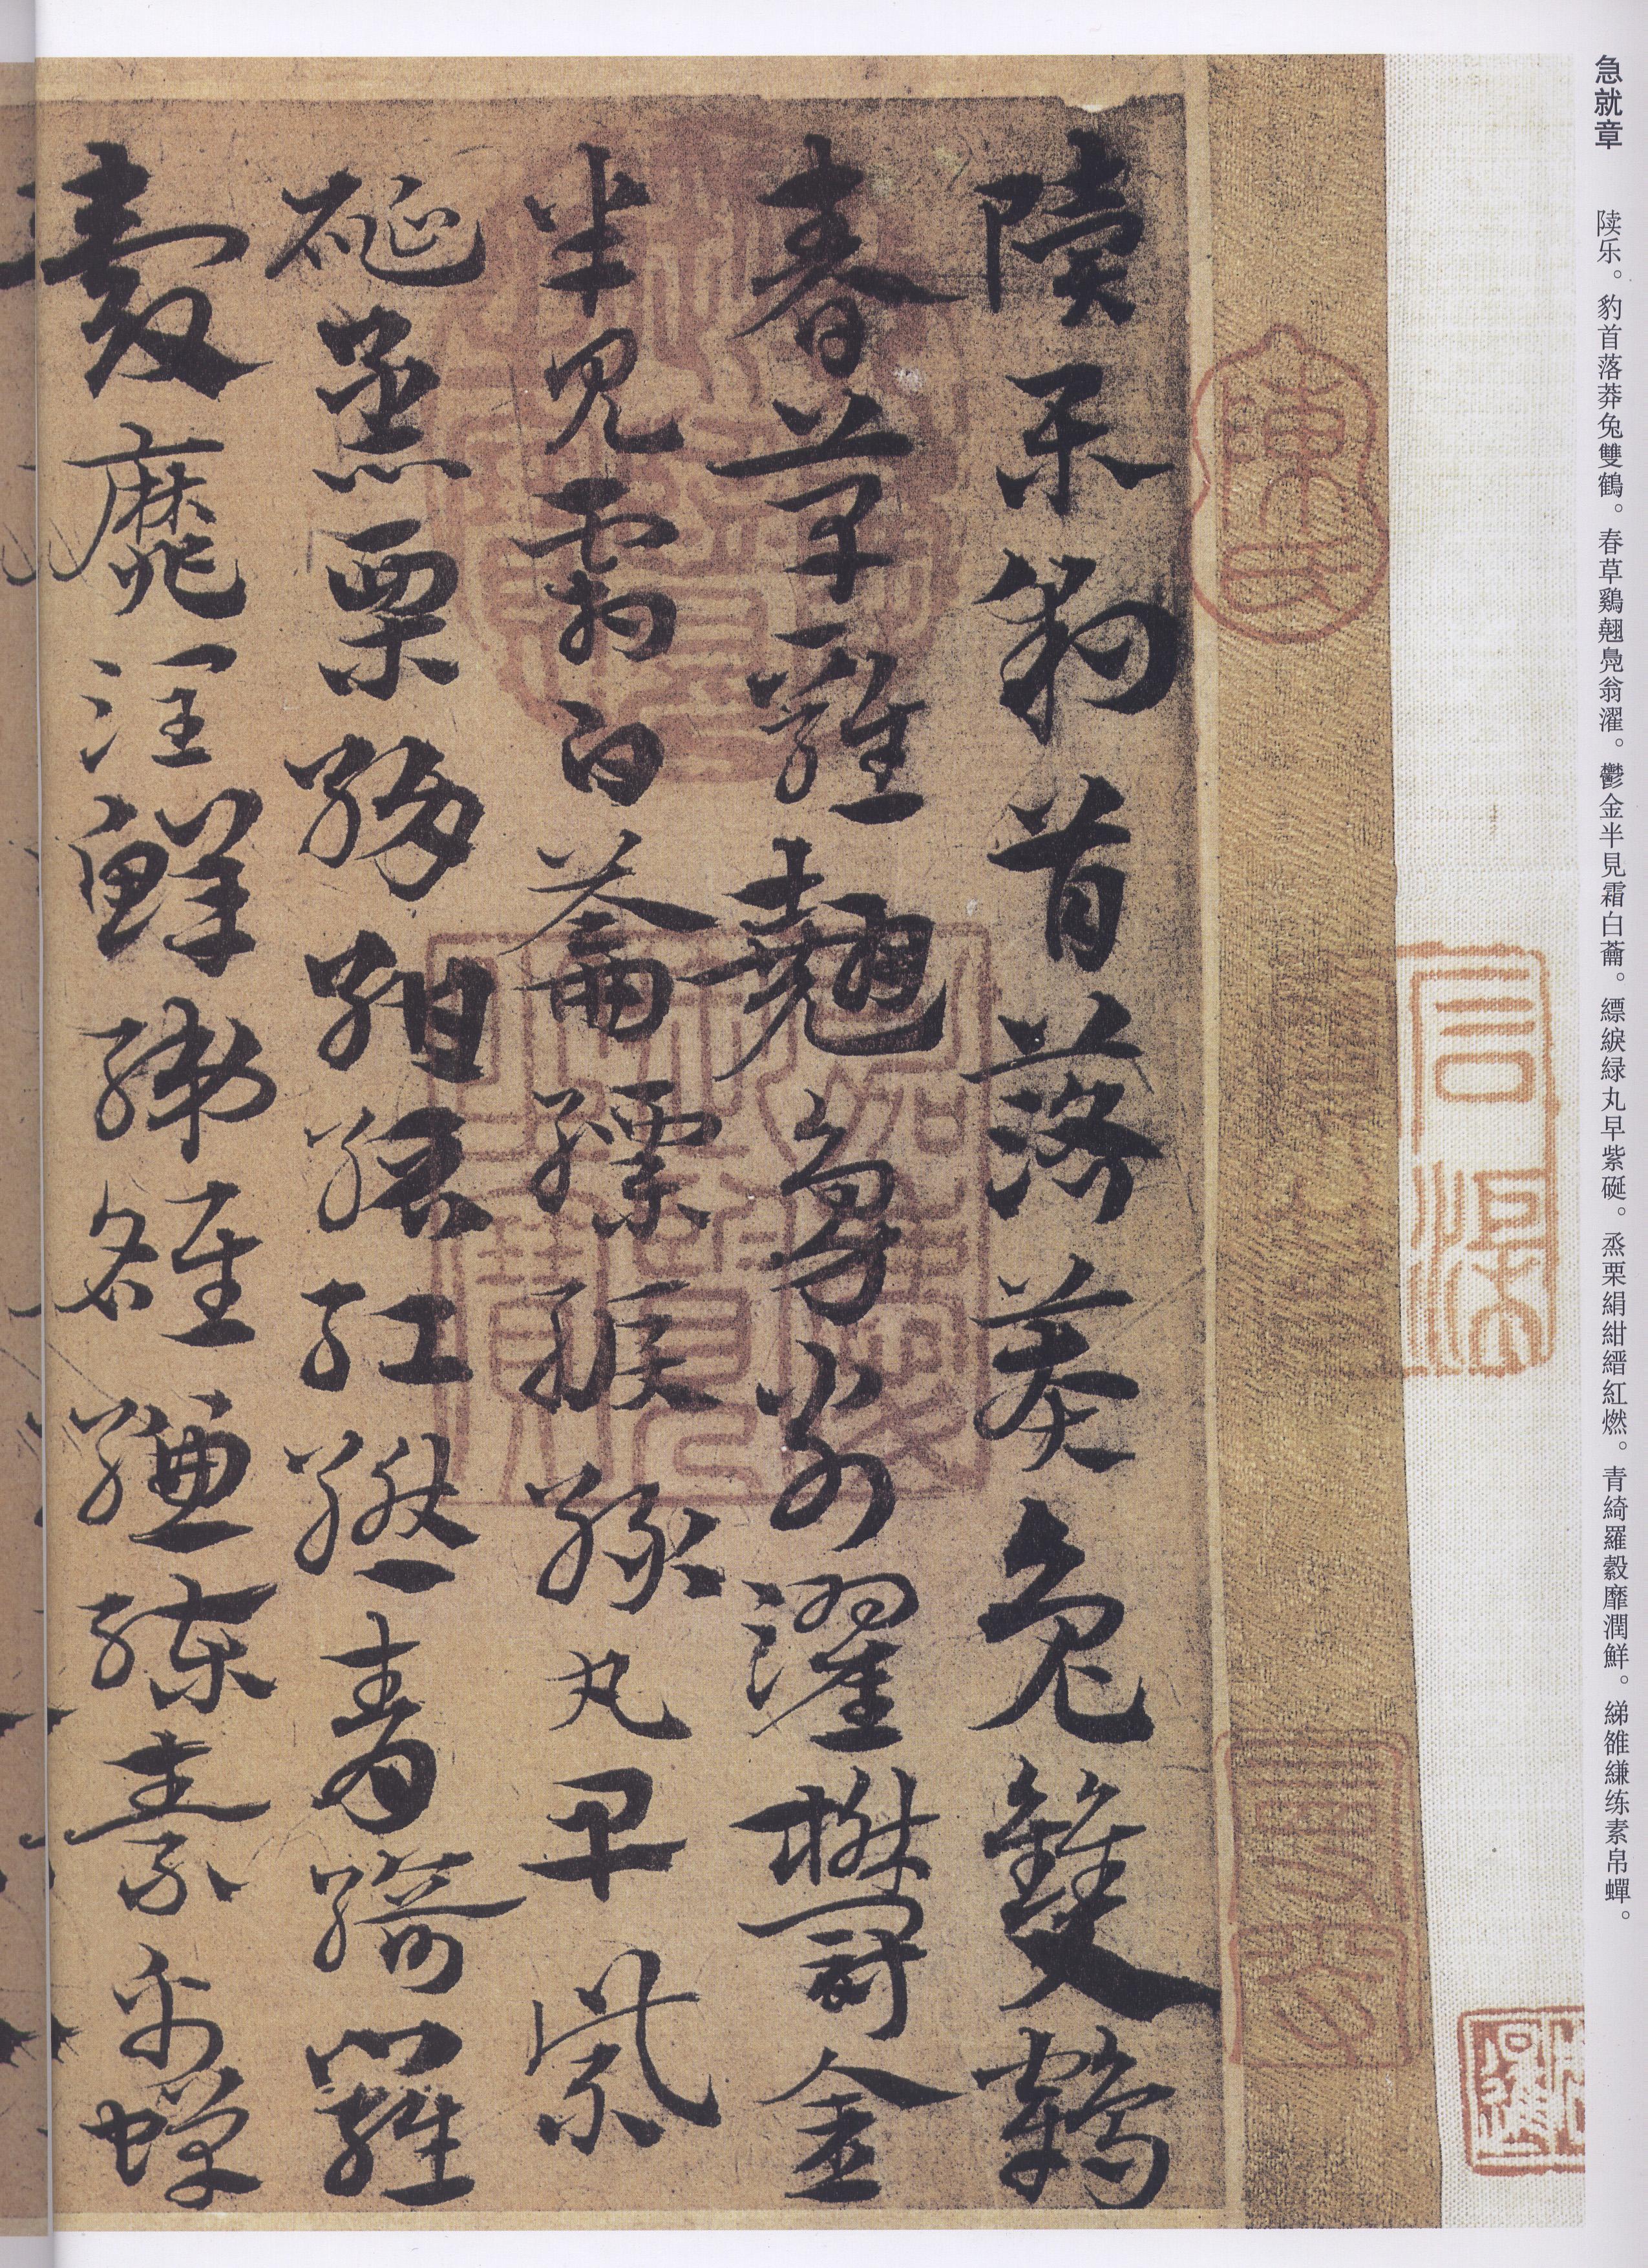 急就章 陖乐。豹首落莽兔雙鶴。春草鷄翹鳧翁濯。鬱金半見霜白䔵。縹綟緑丸早紫硟。烝栗絹紺縉紅燃。青綺羅縠靡潤鮮。綈雒縑练素帛蟬。
乐豹首落莽兔雙鶴
春草雞翹鳧翁濯鬱金
半見霜白䔵縹綟緑丸早紫
硟烝栗絹紺縉紅繎青綺羅
縠靡潤鮮綈雒縑練素帛蟬
陳氏